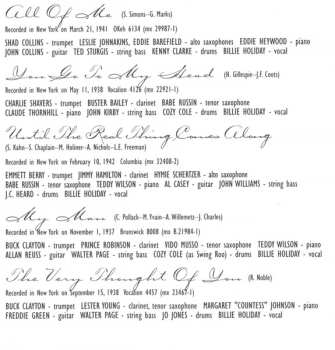 All Of Me (S. Simons–G. Marks)
Recorded in New York on March 21, 1941 OKeh 6134 (mx 29987-1)
SHAD COLLINS - trumpet LESLIE JOHNAKINS, EDDIE BAREFIELD - alto saxophones EDDIE HEYWOOD - piano
JOHN COLLINS - guitar TED STURGIS - string bass KENNY CLARKE - drums BILLIE HOLIDAY - vocal
You Go To My Head (H. Gillespie-J.F. Coots)
Recorded in New York on May 11, 1938 Vocalion 4126 (mx 22921-1)
CHARLIE SHAVERS - trumpet BUSTER BAILEY - clarinet BABE RUSSIN - tenor saxophone
CLAUDE THORNHILL - piano JOHN KIRBY - string bass COZY COLE - drums BILLIE HOLIDAY - vocal
Until The Real Thing Comes Along
(S. Kahn–S. Chaplain–M. Holiner–A. Nichols–L.E. Freeman)
Recorded in New York on February 10, 1942 Columbia (mx 32408-2)
EMMETT BERRY - trumpet JIMMY HAMILTON - clarinet HYMIE SCHERTZER - alto saxophone
BABE RUSSIN - tenor saxophone TEDDY WILSON - piano AL CASEY - guitar JOHN WILLIAMS - string bass
J.C. HEARD - drums BILLIE HOLIDAY - vocal
My Man (C. Pollack–M. Yvain–A. Willemetz–J. Charles)
Recorded in New York on November 1, 1937 Brunswick 8008 (mx B.21984-1)
BUCK CLAYTON - trumpet PRINCE ROBINSON - clarinet VIDO MUSSO - tenor saxophone TEDDY WILSON - piano
ALLAN REUSS - guitar WALTER PAGE - string bass COZY COLE (as Swing Rou) - drums BILLIE HOLIDAY - vocal
The Very Thought Of You (R. Noble)
Recorded in New York on September 15, 1938 Vocalion 4457 (mx 23467-1)
BUCK CLAYTON - trumpet LESTER YOUNG - clarinet, tenor saxophone MARGARET "COUNTESS" JOHNSON - piano
FREDDIE GREEN - guitar WALTER PAGE - string bass JO JONES - drums BILLIE HOLIDAY - vocal